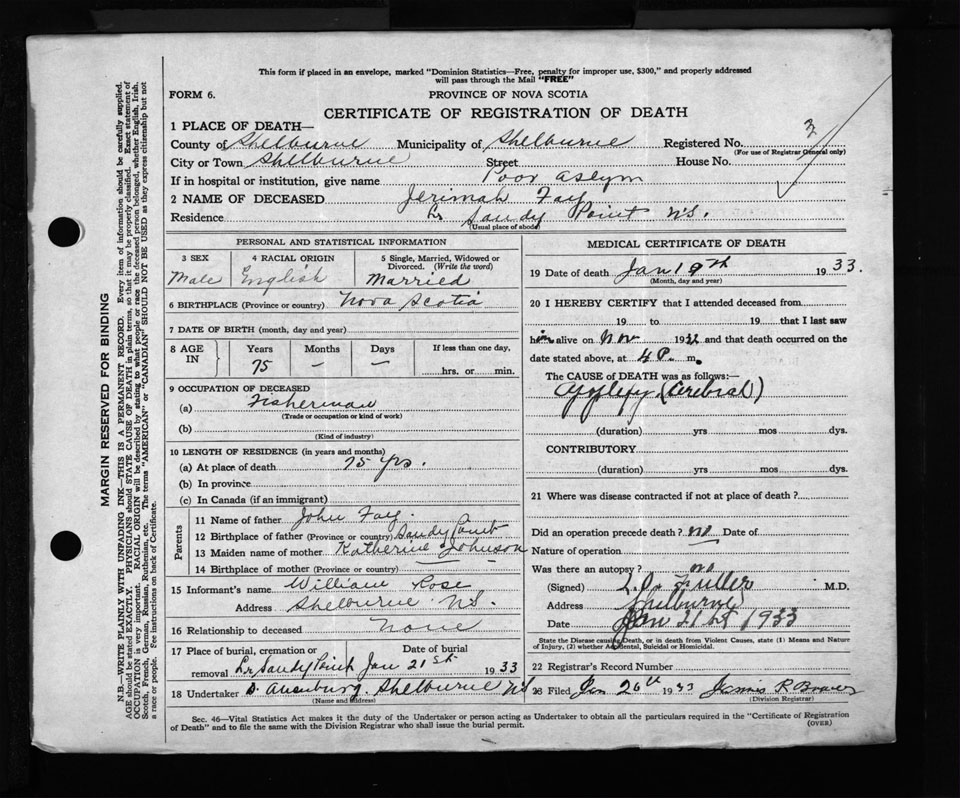 This form if placed in an envelope, marked "Dominion Statistics—Free, penalty for improper use, $300," and properly addressed
will pass through the Mail "FREE"
FORM 6.
PROVINCE OF NOVA SCOTIA
CERTIFICATE OF REGISTRATION OF DEATH
1 PLACE OF DEATH—
County of Shelburne Municipality of Shelburne Registered No. 3
(For use of Registrar General only)
City or Town Shelburne Street House No.
If in hospital or institution, give name Poor aslym
2 NAME OF DECEASED Jerimah Fay
Residence Lr Sandy Point N.S.
(Usual place of abode)
PERSONAL AND STATISTICAL INFORMATION
3 SEX 4 RACIAL ORIGIN 5 Single, Married, Widowed or
Divorced. (Write the word)
Male English Married
6 BIRTHPLACE (Province or country) Nova Scotia
7 DATE OF BIRTH (month, day and year)
8 AGE IN Years Months Days If less than one day,
75 — — hrs. or min.
9 OCCUPATION OF DECEASED
(a) Fisherman
(Trade or occupation or kind of work)
(b)
(Kind of industry)
10 LENGTH OF RESIDENCE (in years and months)
(a) At place of death 75 yrs.
(b) In province
(c) In Canada (if an immigrant)
Parents
11 Name of father John Fay
12 Birthplace of father (Province or country) Sandy Point
13 Maiden name of mother Katherine Johnson
14 Birthplace of mother (Province or country) —
15 Informant's name William Rose
Address Shelburne N.S.
16 Relationship to deceased None
17 Place of burial, cremation or Date of burial
removal Lr Sandy Point Jan 21st 1933
18 Undertaker Shelburne N.S.
(Name and address)
MEDICAL CERTIFICATE OF DEATH
19 Date of death Jan 19th 1933.
(Month, day and year)
20 I HEREBY CERTIFY that I attended deceased from
19 to 19 that I last saw
him alive on Nov 1932 and that death occurred on the
date stated above, at 4 P. m.
The CAUSE OF DEATH was as follows:—
(Cerebral)
(duration) yrs mos dys.
CONTRIBUTORY
(duration) yrs. mos. dys.
21 Where was disease contracted if not at place of death?
Did an operation precede death? no Date of
Nature of operation
Was there an autopsy? no
(Signed) Fuller M.D.
Address Shelburne
Date Jan 21st 1933
State the Disease causing Death, or in death from Violent Causes, state (1) Means and Nature
of Injury, (2) whether Accidental, Suicidal or Homicidal.
22 Registrar's Record Number
Filed Jan 26th 1933 James R Bower
(Division Registrar)
Sec. 46—Vital Statistics Act makes it the duty of the Undertaker or person acting as Undertaker to obtain all the particulars required in the "Certificate of Registration
of Death" and to file the same with the Division Registrar who shall issue the burial permit.
(OVER)
MARGIN RESERVED FOR BINDING
N.B.—WRITE PLAINLY WITH UNFADING INK—THIS IS A PERMANENT RECORD. Every item of information should be carefully supplied.
AGE should be stated EXACTLY. PHYSICIANS should STATE CAUSE OF DEATH in plain terms, so that it may be properly classified. Exact statement of
OCCUPATION is very important. RACIAL ORIGIN will be described by stating to what people or race the deceased person belonged, whether English, Irish,
Scotch, French, German, Russian, Ruthenian, etc. The terms "AMERICAN" or "CANADIAN" SHOULD NOT BE USED as they express citizenship but not
a race or people. See instructions on back of Certificate.